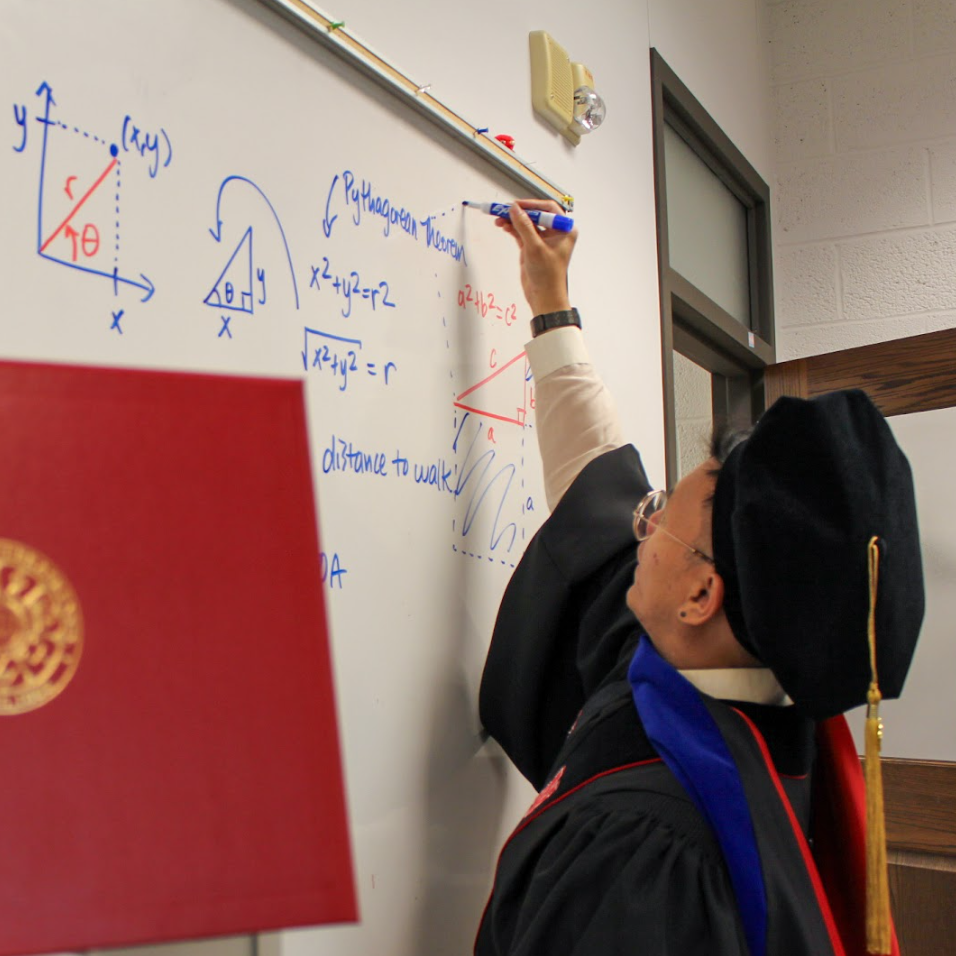 y
(x,y)
r
θ
x
θ
y
x
Pythagorean Theorem
x²+y²=r²
√x²+y² = r
a²+b²=c²
c
b
a
distance to walk
a